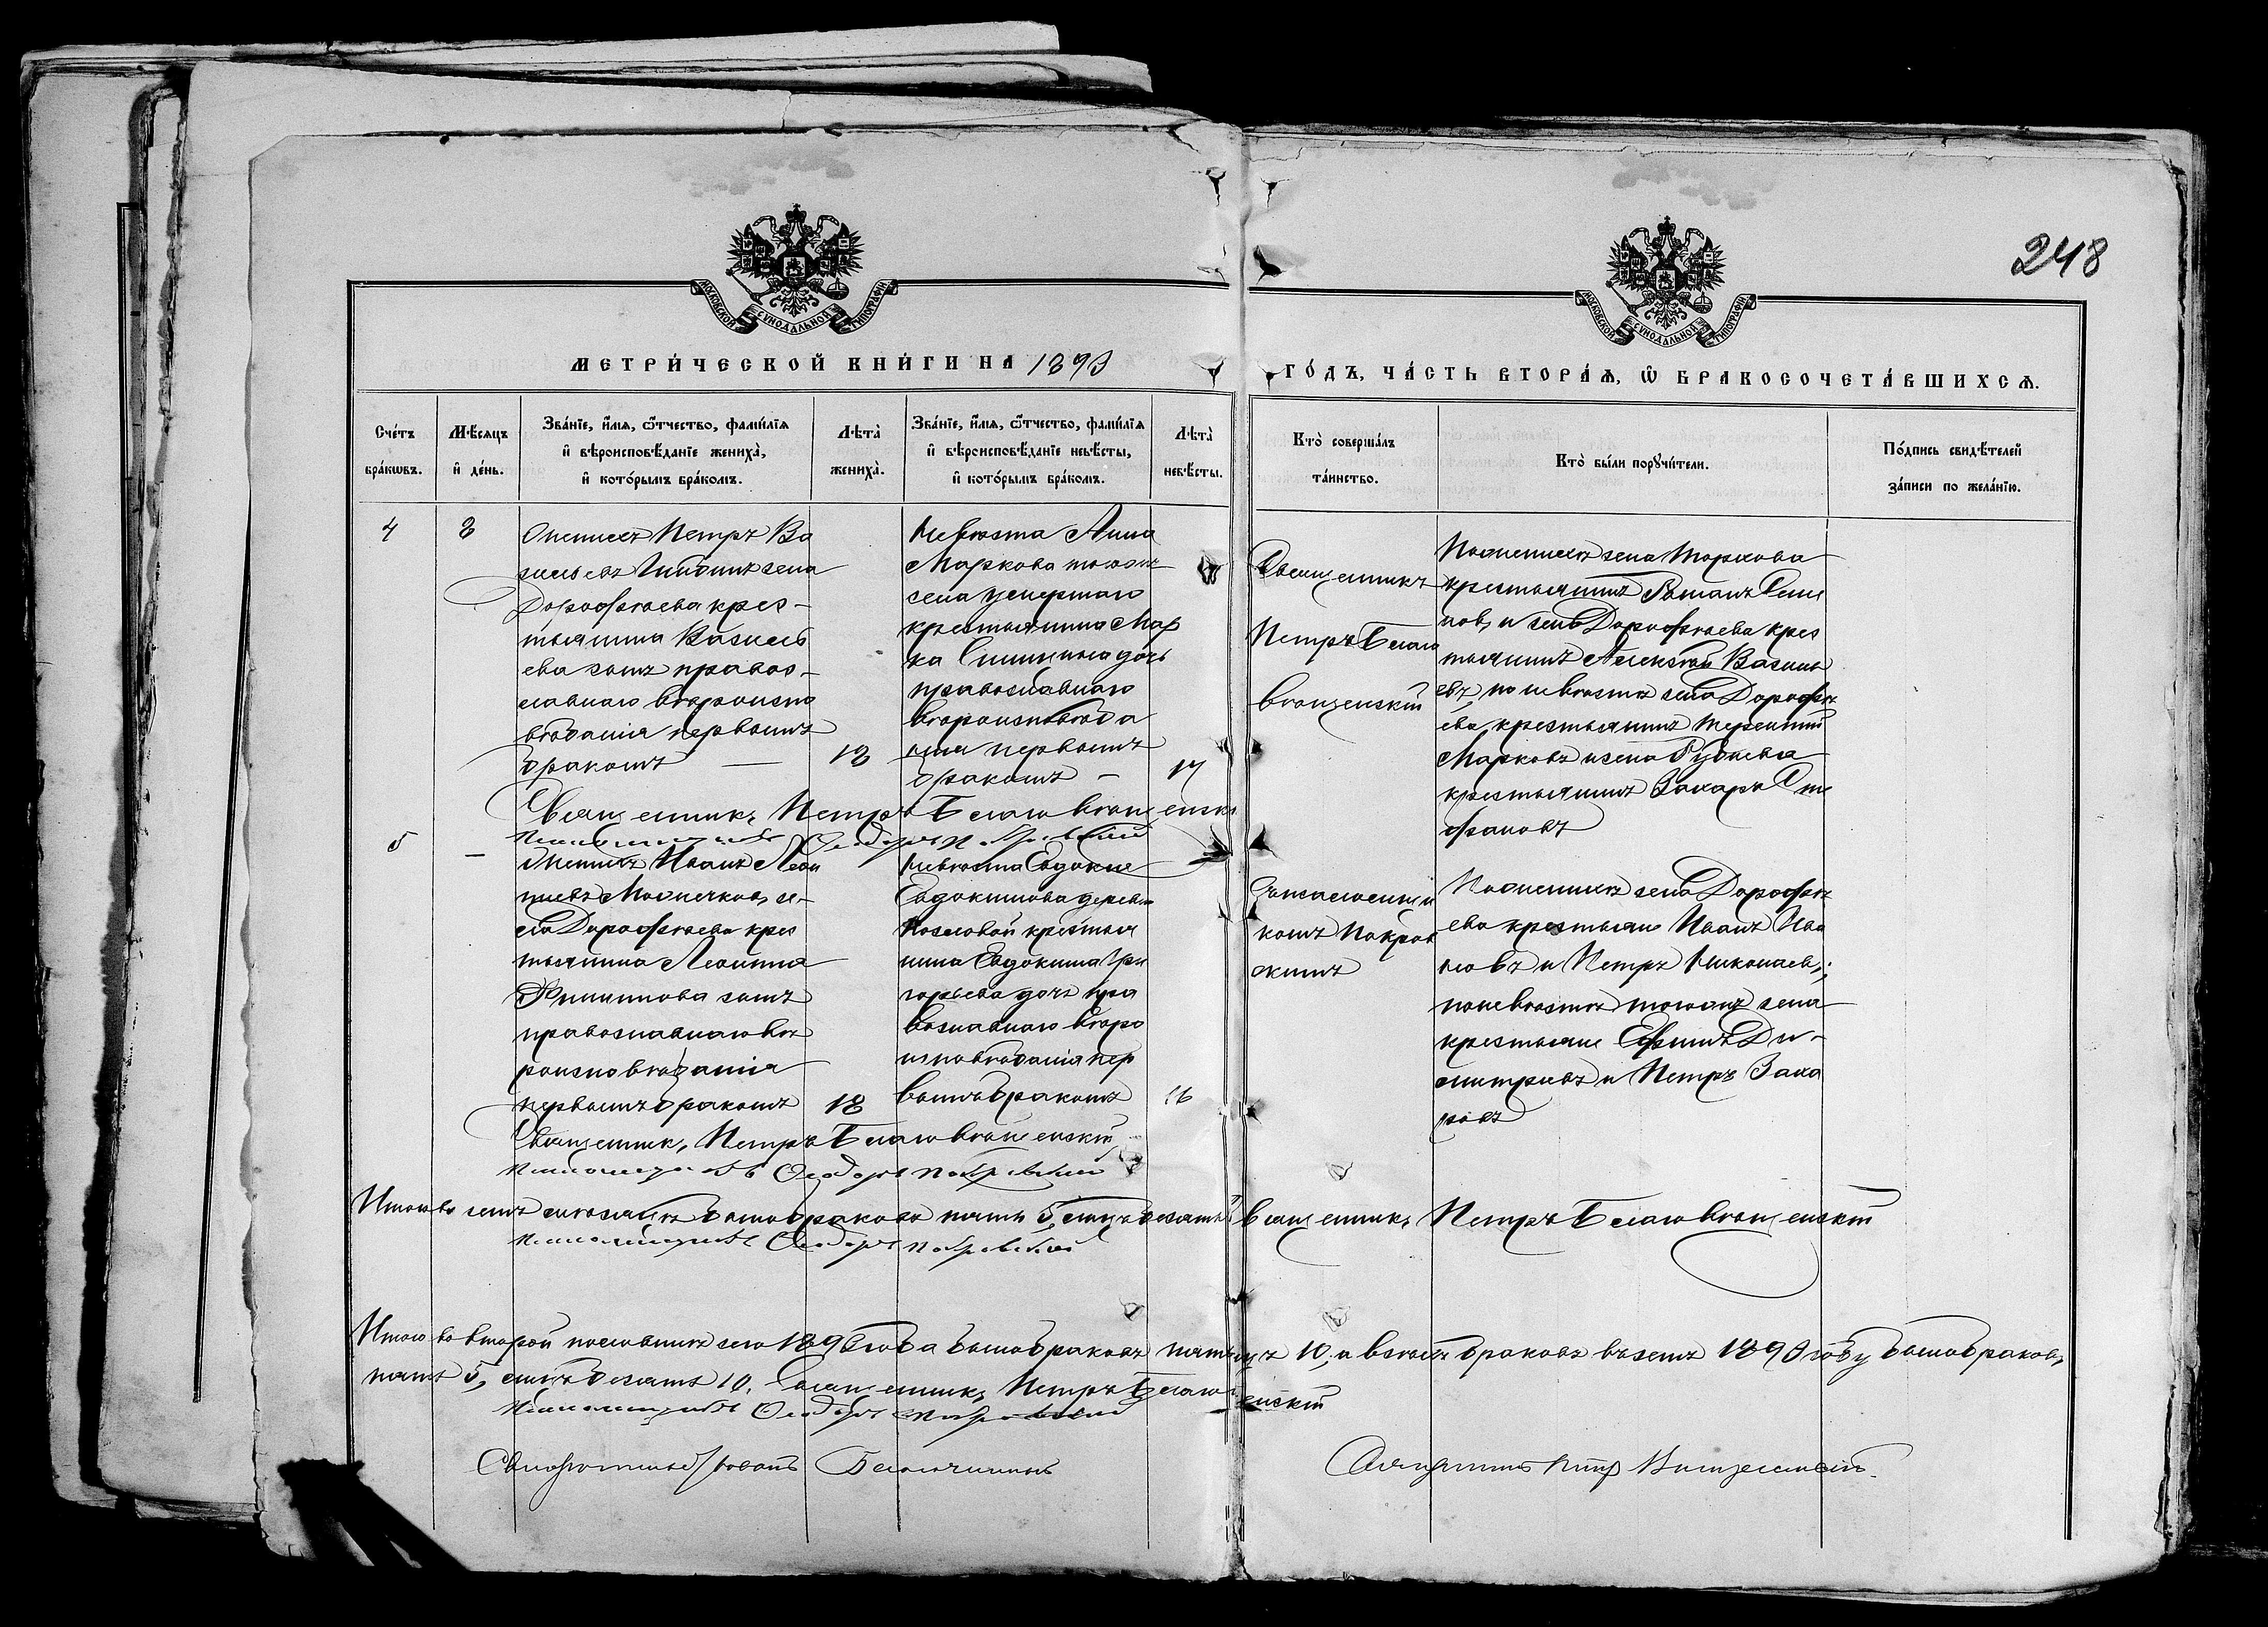 248
МОСКОВСКОЙ СѴНОДАЛЬНОЙ ТИПОГРАФІИ
МОСКОВСКОЙ СѴНОДАЛЬНОЙ ТИПОГРАФІИ
МЕТРИ́ЧЕСКОЙ КНИ́ГИ НА 1893
ГО́ДЪ, ЧА́СТЬ ВТОРА́Ѧ, Ѽ БРАКОСОЧЕТА́ВШИХСѦ.
Сче́тъ
бра́кѡвъ.
Мѣ́сяцъ
и҆ де́нь.
Зва́нїе, и҆́мѧ, ѻ҆́тчество, фами́лїѧ
и҆ вѣроисповѣ́данїе жениха̀,
и҆ кото́рымъ бра́комъ.
Лѣта̀
жениха̀.
Зва́нїе, и҆́мѧ, ѻ҆́тчество, фами́лїѧ
и҆ вѣроисповѣ́данїе невѣ́сты,
и҆ кото́рымъ бра́комъ.
Лѣта̀
невѣ́сты.
Кто̀ соверша́лъ
та́инство.
Кто̀ бы́ли порꙋчи́тели.
По́дпись свидѣ́телей
за́писи по жела́нїю.
4
8
Женихъ Петръ Ва
сильевъ села
Дорофѣева крес-
тьянина Василь
ева сынъ правос-
лавнаго вѣроиспо
вѣданія первымъ
бракомъ —
18
Невѣста Анна
Маркова тогожъ
села умершаго
крестьянина Мар
ка дочь
православнаго
вѣроисповѣда
нія первымъ
бракомъ —
17
Священникъ
Петръ Благо
вѣщенскій
По женихѣ села Торхова
крестьянинъ Романъ Семе
новъ и села Дорофѣева крес
тьянинъ Алексѣй Василь
евъ, по невѣстѣ села Дорофѣ
ева крестьянинъ Терентій
Марковъ и села Руднева
крестьянинъ Захаръ Сте
фановъ
Священникъ Петръ Благовѣщенскій
Псаломщикъ Ѳеодоръ Покровскій
5
—
Женихъ Иванъ Леон
тіевъ се-
ла Дорофѣева крес
тьянина Леонтія
Филиппова сынъ
православнаго вѣ
роисповѣданія
первымъ бракомъ
18
Невѣста Евдокія
Евдокимова деревни
Козловой крестья
нина Евдокима Гри
горьева дочь пра
вославнаго вѣро
исповѣданія пер
вымъ бракомъ
16
Съ псаломщи
комъ Покров
скимъ
По женихѣ села Дорофѣ
ева крестьяне Иванъ Ива
новъ и Петръ Николаевъ;
по невѣстѣ тогожъ села
крестьяне Ефимъ Ди-
митріевъ и Петръ Заха
ровъ
Священникъ Петръ Благовѣщенскій
Псаломщикъ Ѳеодоръ Покровскій
Итого въ семъ мѣсяцѣ было браковъ пять 5, лицъ десять Священникъ Петръ Благовѣщенскій
Псаломщикъ Ѳеодоръ Покровскій
Итого во второй половинѣ сего 1893 года было браковъ пять лицъ 10; а всѣхъ браковъ въ семъ 1893 году было браковъ
пять 5, лицъ десять 10. Священникъ Петръ Благовѣщенскій
Псаломщикъ Ѳеодоръ Покровскій
Свидѣтельствовалъ Благочинный
Священникъ Петръ